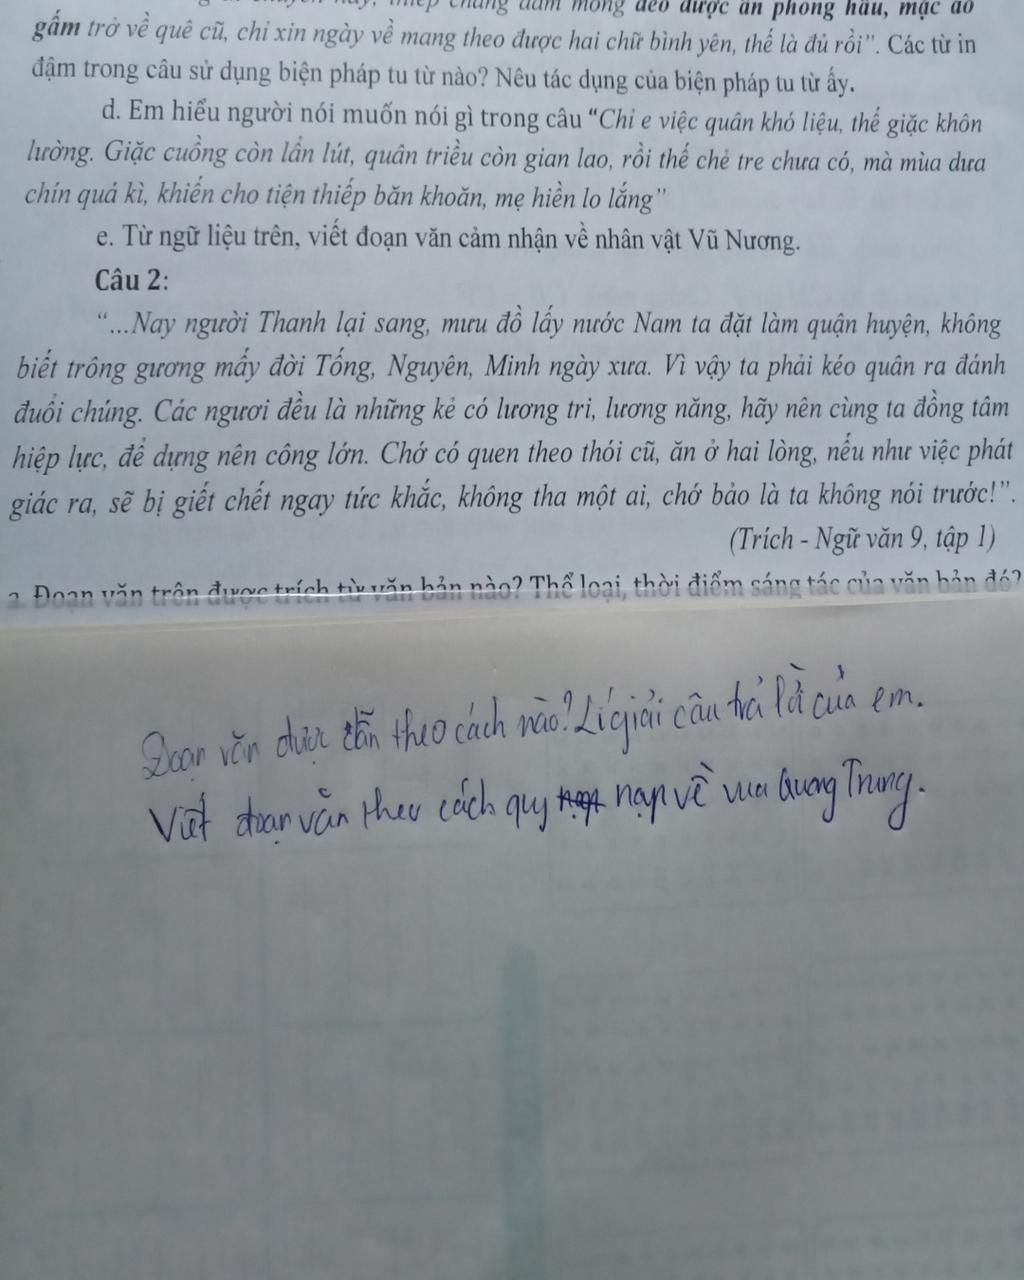 đeo được ấn phong hầu, mặc áo
gấm trở về quê cũ, chỉ xin ngày về mang theo được hai chữ bình yên, thế là đủ rồi”. Các từ in
đậm trong câu sử dụng biện pháp tu từ nào? Nêu tác dụng của biện pháp tu từ ấy.
d. Em hiểu người nói muốn nói gì trong câu “Chỉ e việc quân khó liệu, thế giặc khôn
lường. Giặc cuồng còn lẩn lút, quân triều còn gian lao, rồi thế chẻ tre chưa có, mà mùa dưa
chín quá kì, khiến cho tiện thiếp băn khoăn, mẹ hiền lo lắng”
e. Từ ngữ liệu trên, viết đoạn văn cảm nhận về nhân vật Vũ Nương.
Câu 2:
“...Nay người Thanh lại sang, mưu đồ lấy nước Nam ta đặt làm quận huyện, không
biết trông gương mấy đời Tống, Nguyên, Minh ngày xưa. Vì vậy ta phải kéo quân ra đánh
đuổi chúng. Các ngươi đều là những kẻ có lương tri, lương năng, hãy nên cùng ta đồng tâm
hiệp lực, để dựng nên công lớn. Chớ có quen theo thói cũ, ăn ở hai lòng, nếu như việc phát
giác ra, sẽ bị giết chết ngay tức khắc, không tha một ai, chớ bảo là ta không nói trước!”.
(Trích - Ngữ văn 9, tập 1)
a. Đoạn văn trên được trích từ văn bản nào? Thể loại, thời điểm sáng tác của văn bản đó?
Đoạn văn được dẫn theo cách nào? Lí giải câu trả là của em.
Viết đoạn văn theo cách quy nạp về vua Quang Trung.